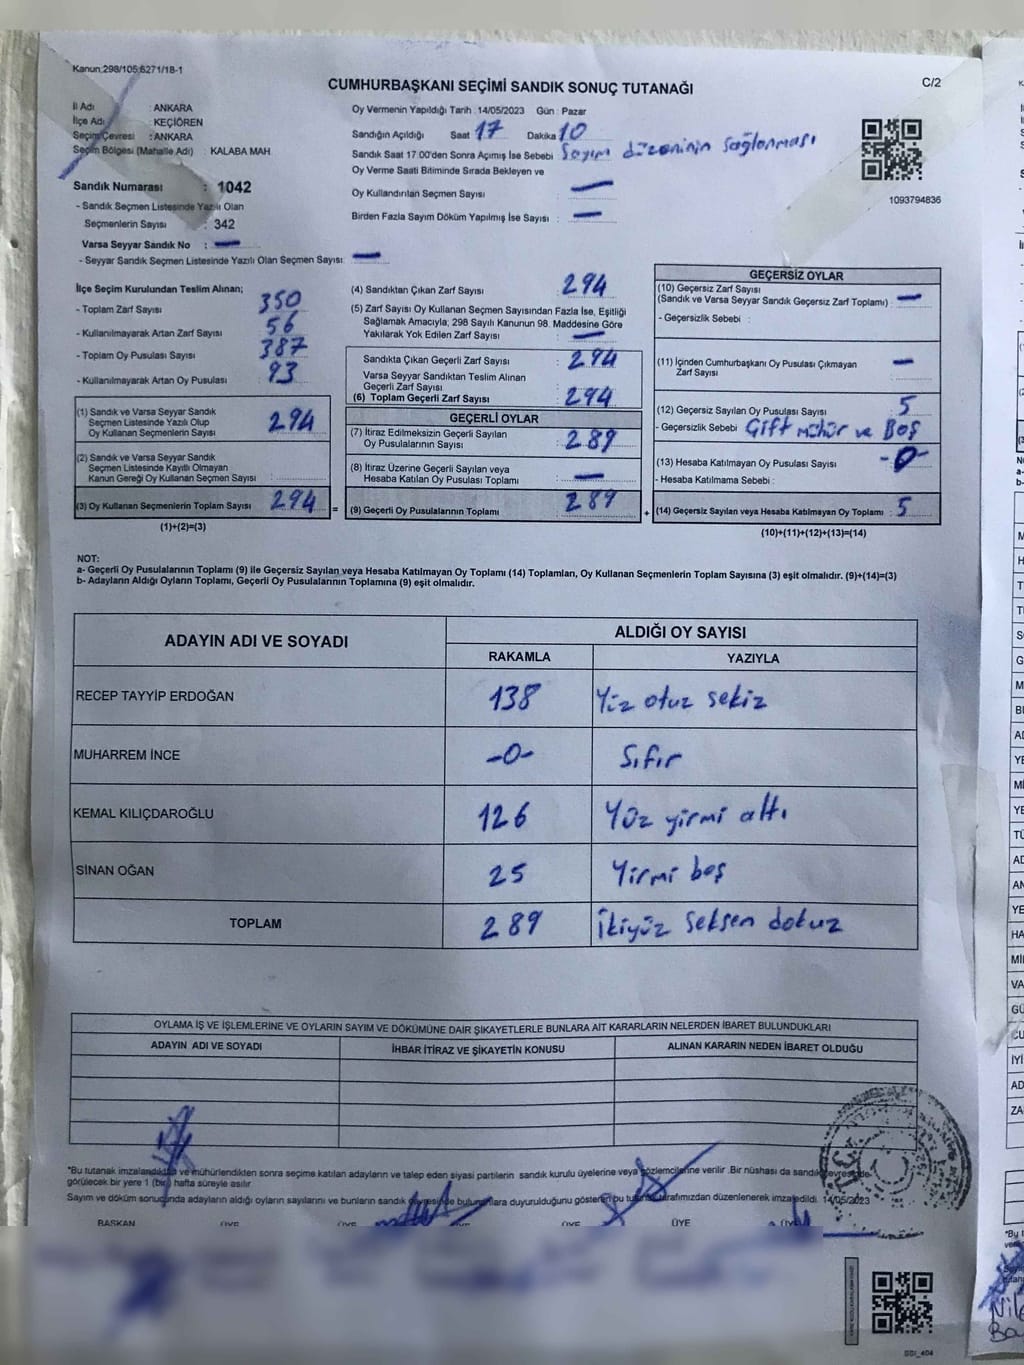 Kanun:298/105,6271/18-1
C/2
CUMHURBAŞKANI SEÇİMİ SANDIK SONUÇ TUTANAĞI
İl Adı : ANKARA
İlçe Adı : KEÇİÖREN
Seçim Çevresi : ANKARA
Seçim Bölgesi (Mahalle Adı) : KALABA MAH.
Sandık Numarası : 1042
- Sandık Seçmen Listesinde Yazılı Olan
Seçmenlerin Sayısı : 342
Varsa Seyyar Sandık No : —
- Seyyar Sandık Seçmen Listesinde Yazılı Olan Seçmen Sayısı: —
Oy Vermenin Yapıldığı Tarih : 14/05/2023 Gün : Pazar
Sandığın Açıldığı Saat 17 Dakika 10
Sandık Saat 17:00'den Sonra Açımış İse Sebebi Sayım düzeninin sağlanması
Oy Verme Saati Bitiminde Sırada Bekleyen ve
Oy Kullandırılan Seçmen Sayısı —
Birden Fazla Sayım Döküm Yapılmış İse Sayısı : —
1093794836
İlçe Seçim Kurulundan Teslim Alınan;
- Toplam Zarf Sayısı : 350
- Kullanılmayarak Artan Zarf Sayısı : 56
- Toplam Oy Pusulası Sayısı : 387
- Kullanılmayarak Artan Oy Pusulası : 93
(1) Sandık ve Varsa Seyyar Sandık
Seçmen Listesinde Yazılı Olup
Oy Kullanan Seçmenlerin Sayısı : 294
(2) Sandık ve Varsa Seyyar Sandık
Seçmen Listesinde Kayıtlı Olmayan
Kanun Gereği Oy Kullanan Seçmen Sayısı :
(3) Oy Kullanan Seçmenlerin Toplam Sayısı : 294 =
(1)+(2)=(3)
(4) Sandıktan Çıkan Zarf Sayısı : 294
(5) Zarf Sayısı Oy Kullanan Seçmen Sayısından Fazla İse, Eşitliği
Sağlamak Amacıyla; 298 Sayılı Kanunun 98. Maddesine Göre
Yakılarak Yok Edilen Zarf Sayısı : —
Sandıkta Çıkan Geçerli Zarf Sayısı : 294
Varsa Seyyar Sandıktan Teslim Alınan
Geçerli Zarf Sayısı :
(6) Toplam Geçerli Zarf Sayısı : 294
GEÇERLİ OYLAR
(7) İtiraz Edilmeksizin Geçerli Sayılan
Oy Pusulalarının Sayısı : 289
(8) İtiraz Üzerine Geçerli Sayılan veya
Hesaba Katılan Oy Pusulası Toplamı : —
(9) Geçerli Oy Pusulalarının Toplamı : 289 +
GEÇERSİZ OYLAR
(10) Geçersiz Zarf Sayısı
(Sandık ve Varsa Seyyar Sandık Geçersiz Zarf Toplamı) : —
- Geçersizlik Sebebi :
(11) İçinden Cumhurbaşkanı Oy Pusulası Çıkmayan
Zarf Sayısı : —
(12) Geçersiz Sayılan Oy Pusulası Sayısı : 5
- Geçersizlik Sebebi : Çift mühür ve Boş
(13) Hesaba Katılmayan Oy Pusulası Sayısı : -0-
- Hesaba Katılmama Sebebi :
(14) Geçersiz Sayılan veya Hesaba Katılmayan Oy Toplamı : 5
(10)+(11)+(12)+(13)=(14)
NOT:
a- Geçerli Oy Pusulalarının Toplamı (9) ile Geçersiz Sayılan veya Hesaba Katılmayan Oy Toplamı (14) Toplamları, Oy Kullanan Seçmenlerin Toplam Sayısına (3) eşit olmalıdır. (9)+(14)=(3)
b- Adayların Aldığı Oyların Toplamı, Geçerli Oy Pusulalarının Toplamına (9) eşit olmalıdır.
ADAYIN ADI VE SOYADI ALDIĞI OY SAYISI
RAKAMLA YAZIYLA
RECEP TAYYİP ERDOĞAN 138 Yüz otuz sekiz
MUHARREM İNCE -0- Sıfır
KEMAL KILIÇDAROĞLU 126 Yüz yirmi altı
SİNAN OĞAN 25 Yirmi beş
TOPLAM 289 İkiyüz Seksen dokuz
OYLAMA İŞ VE İŞLEMLERİNE VE OYLARIN SAYIM VE DÖKÜMÜNE DAİR ŞİKAYETLERLE BUNLARA AİT KARARLARIN NELERDEN İBARET BULUNDUKLARI
ADAYIN ADI VE SOYADI İHBAR İTİRAZ VE ŞİKAYETİN KONUSU ALINAN KARARIN NEDEN İBARET OLDUĞU
*Bu tutanak imzalandıktan ve mühürlendikten sonra seçime katılan adayların ve talep eden siyasi partilerin sandık kurulu üyelerine veya gözlemcilerine verilir .Bir nüshası da sandık çevresinde
görülecek bir yere 1 (bir) hafta süreyle asılır
Sayım ve döküm sonucında adayların aldığı oyların sayılarını ve bunların sandık çevresinde bulunanlara duyurulduğunu gösteren bu tutanak tarafımızdan düzenlenerek imzaledildi. 14/05/2023
BAŞKAN ÜYE ÜYE ÜYE ÜYE ÜYE